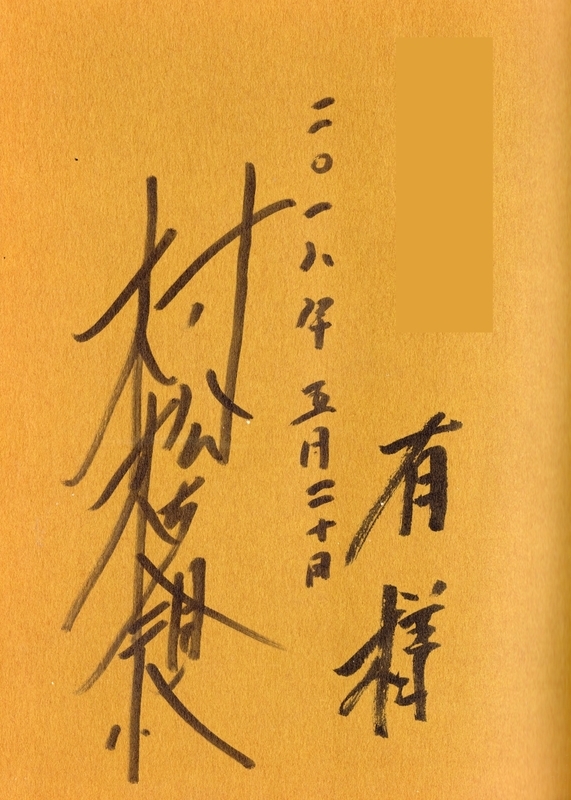 有様
二〇一八年五月二十日
村松